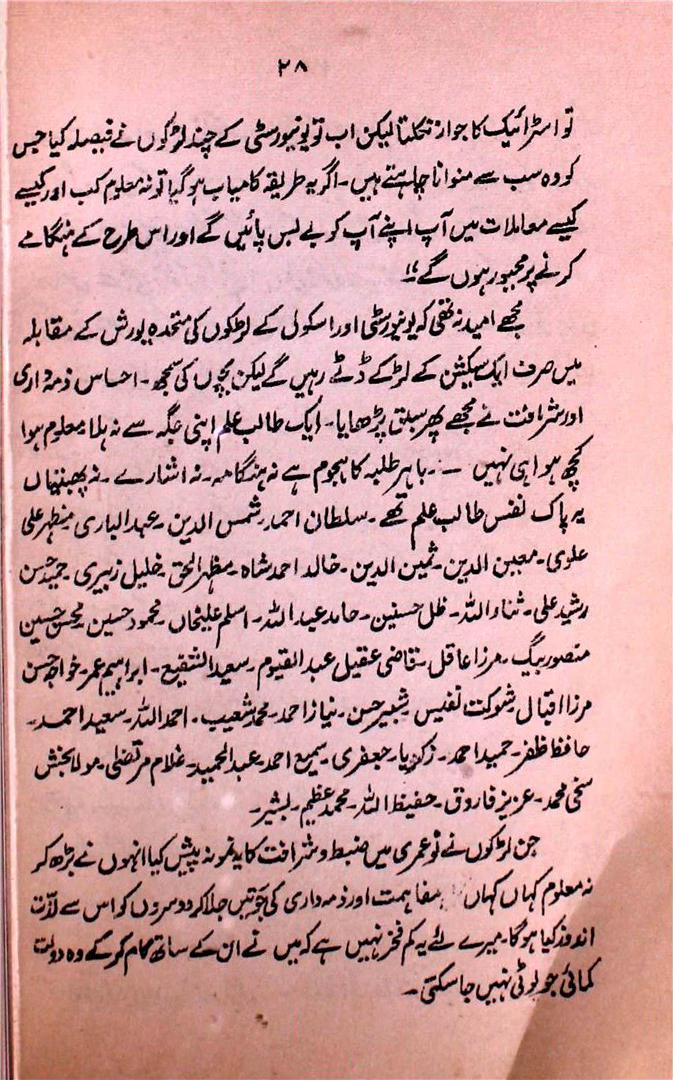 ۲۸
تو اسٹرائیک کا جواز نکلتا لیکن اب تو یونیورسٹی کے چند لڑکوں نے فیصلہ کیا جس
کو وہ سب سے منوانا چاہتے ہیں۔ اگر یہ طریقہ کامیاب ہو گیا تو نہ معلوم کب اور کیسے
کیسے معاملات میں آپ اپنے آپ کو بے بس پائیں گے اور اس طرح کے ہنگامے
کرنے پر مجبور ہوں گے!!
مجھے امید نہ تھی کہ یونیورسٹی اور اسکول کے لڑکوں کی متحدہ یورش کے مقابلہ
میں صرف ایک سیکشن کے لڑکے ڈٹے رہیں گے لیکن بچوں کی سمجھ۔ احساس ذمہ داری
اور شرافت نے مجھے پھر سبق پڑھایا۔ ایک طالب علم اپنی جگہ سے نہ ہلا معلوم ہوا
کچھ ہوا ہی نہیں ۔۔ باہر طلبہ کا ہجوم ہے نہ ہنگامہ۔ نہ اشارے۔ نہ پھبتیاں
یہ پاک نفس طالب علم تھے۔ سلطان احمد۔ شمس الدین۔ عبدالباری۔ منظر علی
علوی۔ معین الدین۔ ثمین الدین۔ خالد احمد شاہ۔ مظہر الحق۔ خلیل زبیری۔ حمید حسن
رشید علی۔ ثناء اللہ۔ ظل حسنین۔ حامد عبداللہ۔ اسلم علیخاں۔ محمود حسین۔ محسن حسین
منصور بیگ۔ مرزا عاقل۔ قاضی عقیل عبدالقیوم۔ سعید الشفیع۔ ابراہیم عمر۔ خواجہ حسن
مرزا اقبال۔ شوکت نفیس۔ شبیر حسن۔ نیاز احمد۔ محمد شعیب۔ احمد اللہ۔ سعید احمد۔
حافظ ظفر۔ حمید احمد۔ زکریا۔ جعفری۔ سمیع احمد۔ عبدالحمید۔ غلام مرتضیٰ۔ مولا بخش
سخی محمد۔ عزیز فاروق۔ حفیظ اللہ۔ محمد عظیم۔ بشیر۔
جن لڑکوں نے نو عمری میں ضبط و شرافت کا یہ نمونہ پیش کیا انہوں نے بڑھ کر
نہ معلوم کہاں کہاں مفاہمت اور ذمہ داری کی جوتیں جلا کر دوسروں کو اس سے لذّت
اندوز کیا ہوگا۔ میرے لئے یہ کم فخر نہیں ہے کہ میں نے ان کے ساتھ کام کر کے وہ دولت
کمائی جو لوٹی نہیں جا سکتی۔